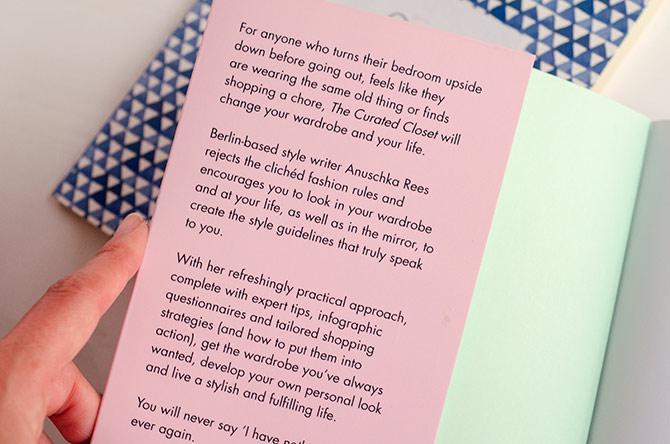 For anyone who turns their bedroom upside
down before going out, feels like they
are wearing the same old thing or finds
shopping a chore, The Curated Closet will
change your wardrobe and your life.
Berlin-based style writer Anuschka Rees
rejects the clichéd fashion rules and
encourages you to look in your wardrobe
and at your life, as well as in the mirror, to
create the style guidelines that truly speak
to you.
With her refreshingly practical approach,
complete with expert tips, infographic
questionnaires and tailored shopping
strategies (and how to put them into
action), get the wardrobe you’ve always
wanted, develop your own personal look
and live a stylish and fulfilling life.
You will never say ‘I have
ever again.